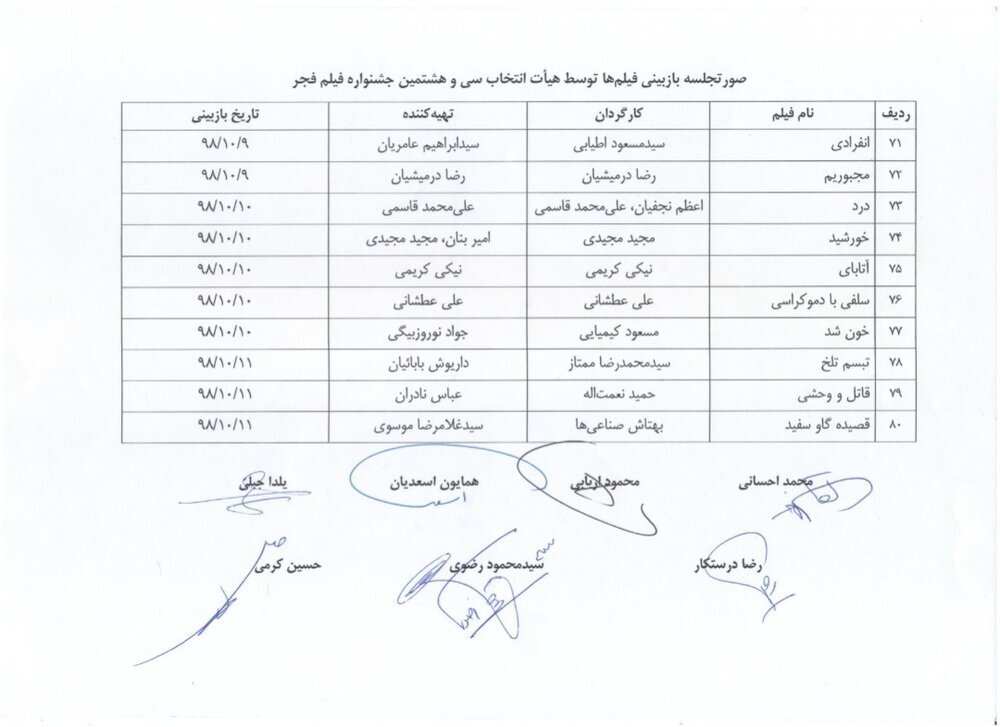 صورتجلسه بازبینی فیلم‌ها توسط هیأت انتخاب سی و هشتمین جشنواره فیلم فجر
ردیف نام فیلم کارگردان تهیه‌کننده تاریخ بازبینی
۷۱ انفرادی سیدمسعود اطیابی سیدابراهیم عامریان ۹۸/۱۰/۹
۷۲ مجبوریم رضا درمیشیان رضا درمیشیان ۹۸/۱۰/۹
۷۳ درد اعظم نجفیان، علی‌محمد قاسمی علی‌محمد قاسمی ۹۸/۱۰/۱۰
۷۴ خورشید مجید مجیدی امیر بنان، مجید مجیدی ۹۸/۱۰/۱۰
۷۵ آتابای نیکی کریمی نیکی کریمی ۹۸/۱۰/۱۰
۷۶ سلفی با دموکراسی علی عطشانی علی عطشانی ۹۸/۱۰/۱۰
۷۷ خون شد مسعود کیمیایی جواد نوروزبیگی ۹۸/۱۰/۱۰
۷۸ تبسم تلخ سیدمحمدرضا ممتاز داریوش بابائیان ۹۸/۱۰/۱۱
۷۹ قاتل و وحشی حمید نعمت‌اله عباس نادران ۹۸/۱۰/۱۱
۸۰ قصیده گاو سفید بهتاش صناعی‌ها سیدغلامرضا موسوی ۹۸/۱۰/۱۱
محمد احسانی محمود اربابی همایون اسعدیان یلدا جبلی
رضا درستکار سیدمحمود رضوی حسین کرمی